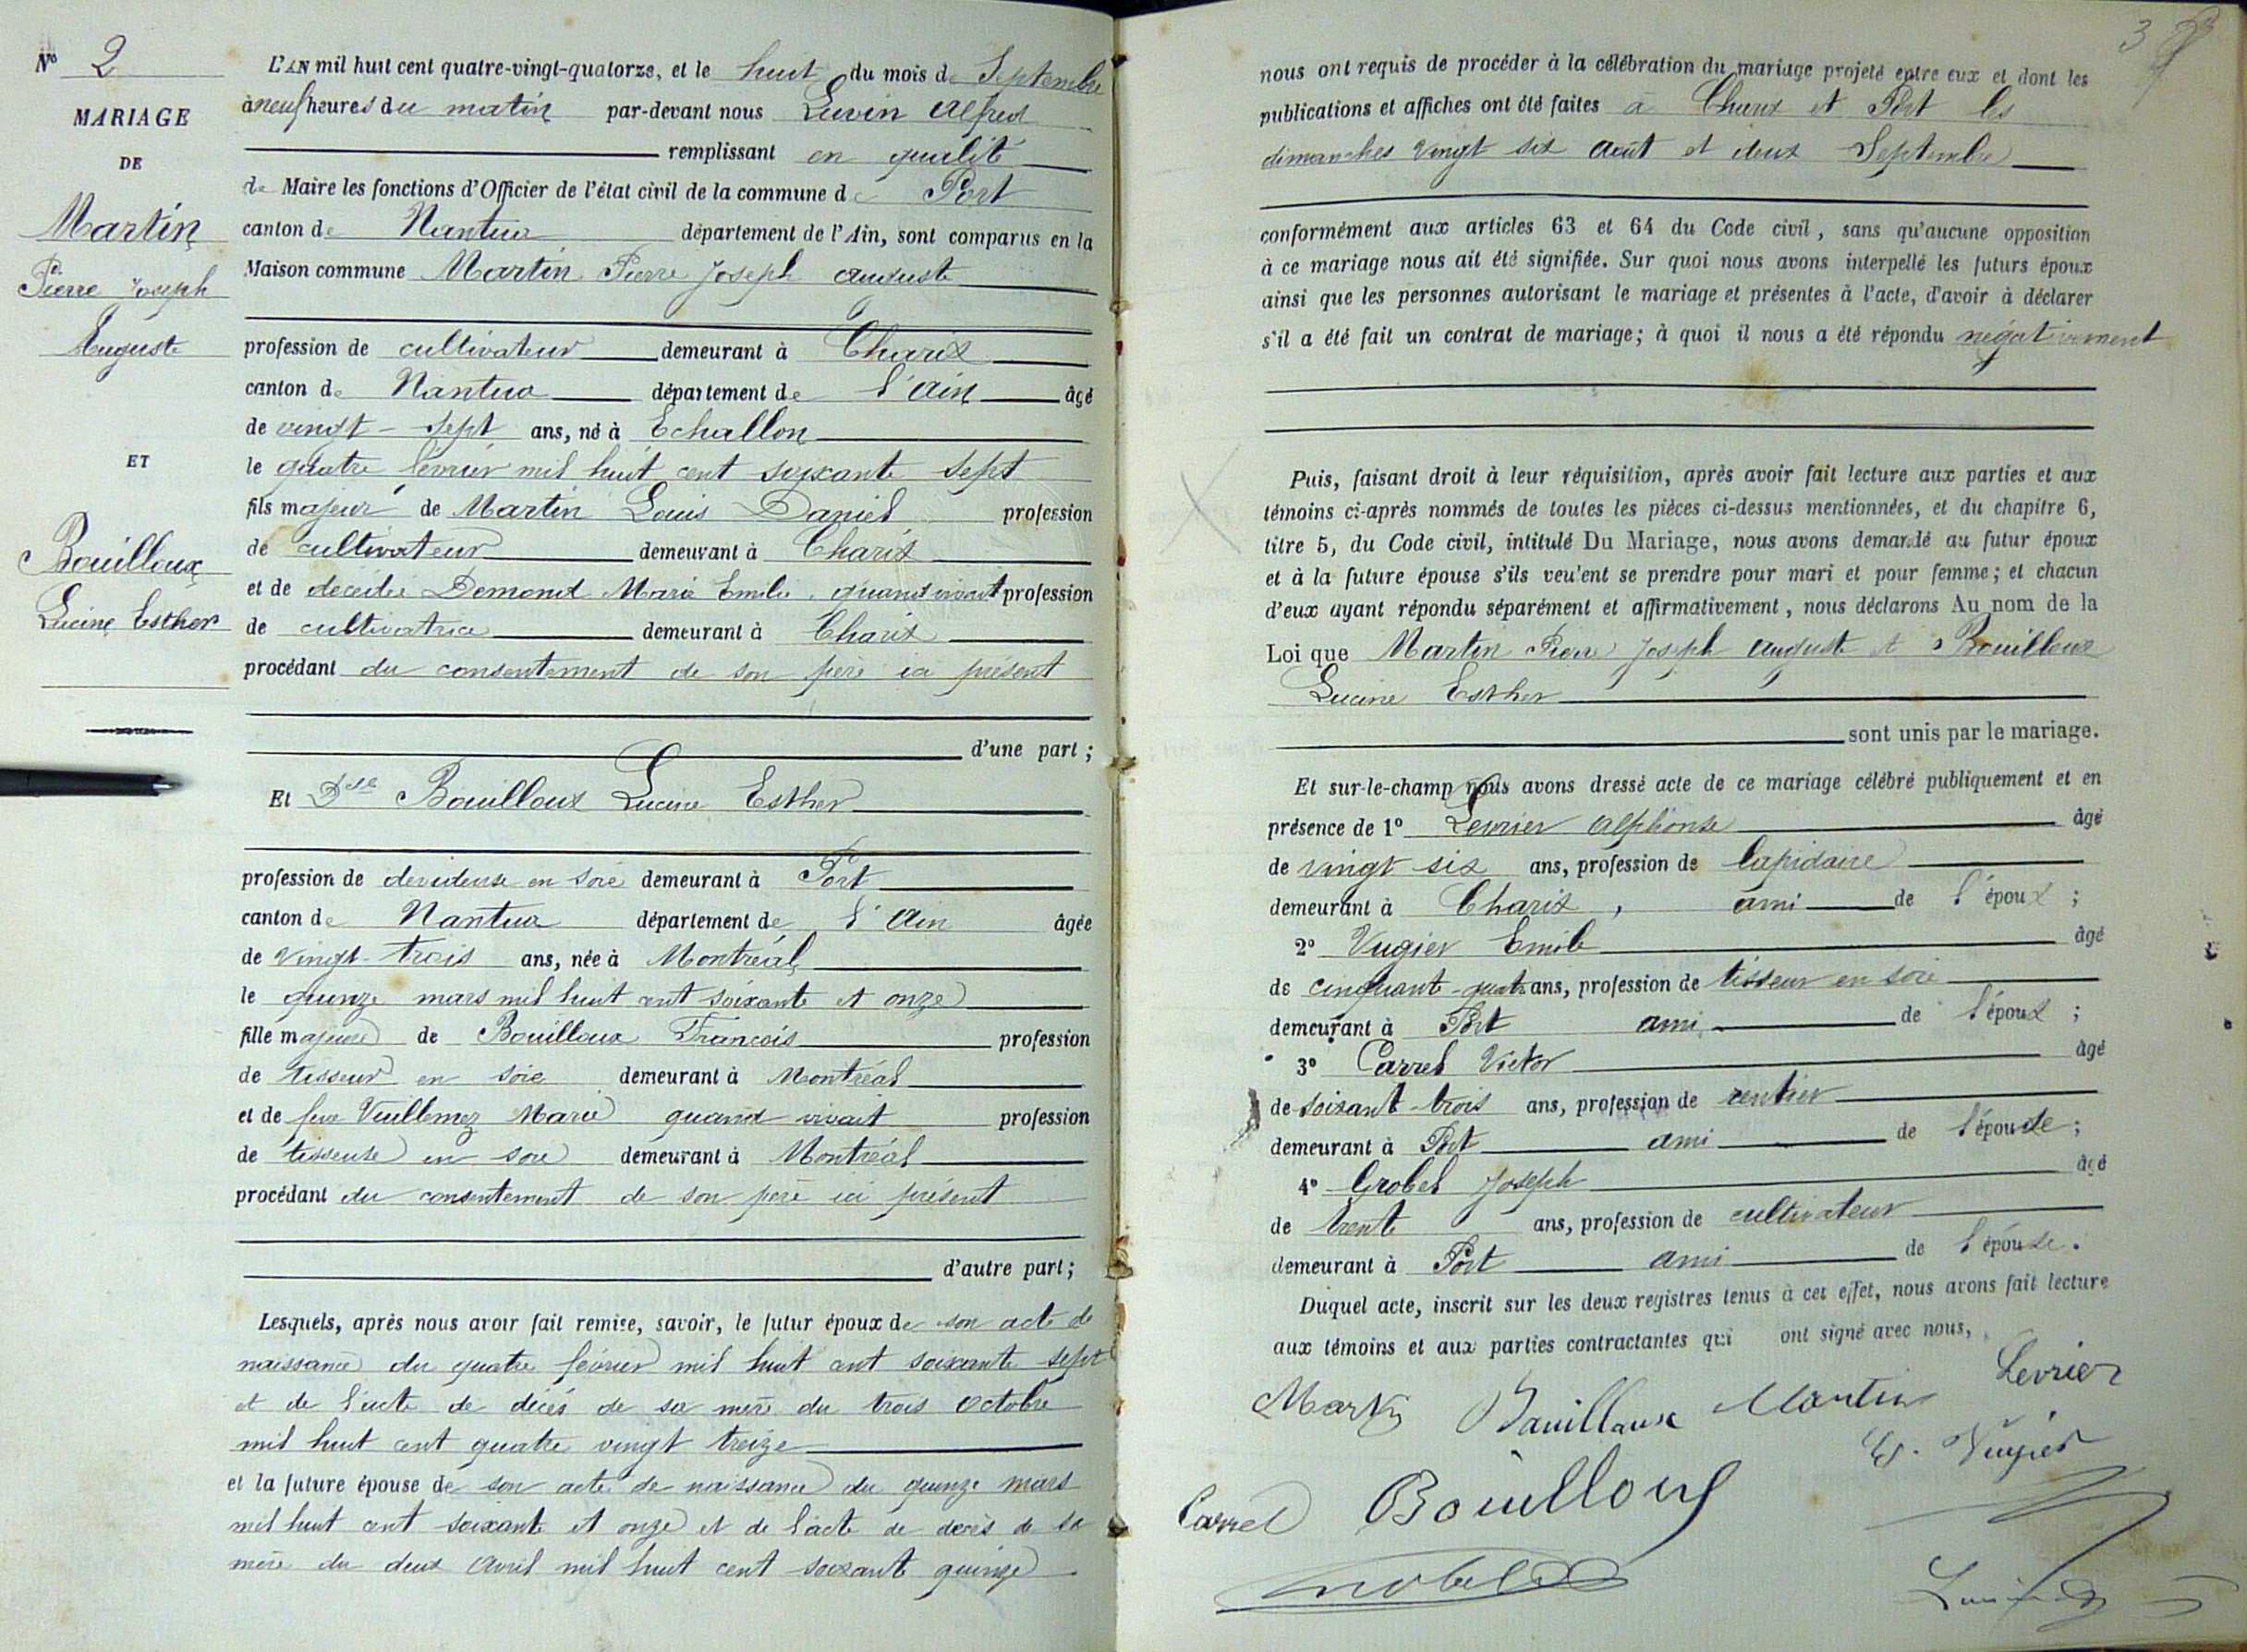 N° 2
MARIAGE
DE
Martin
Pierre Joseph
Auguste
ET
Bouilloux
Lucine Esther
L'AN mil huit cent quatre-vingt-quatorze, et le huit du mois de Septembre
à neuf heures du matin par-devant nous Luvin Alfred
remplissant en qualité
de Maire les fonctions d'Officier de l'état civil de la commune de Port
canton de Nantua département de l'Ain, sont comparus en la
Maison commune Martin Pierre Joseph auguste
profession de cultivateur demeurant à Charix
canton de Nantua département de l'Ain âgé
de vingt-sept ans, né à Echallon
le quatre février mil huit cent soixante sept
fils majeur de Martin Louis Daniel profession
de cultivateur demeurant à Charix
et de décédée Demond Marie Emilie quand vivait profession
de cultivatrice demeurant à Charix
procédant du consentement de son père ici présent
d'une part ;
Et Dlle Bouilloux Lucine Esther
profession de devideuse en soie demeurant à Port
canton de Nantua département de l'Ain âgée
de vingt-trois ans, née à Montréal
le quinze mars mil huit cent soixante et onze
fille majeure de Bouilloux François profession
de tisseur en soie demeurant à Montréal
et de feue Vuillermoz Marie quand vivait profession
de tisseuse en soie demeurant à Montréal
procédant du consentement de son père ici présent
d'autre part ;
Lesquels, après nous avoir fait remise, savoir, le futur époux de son acte de
naissance du quatre février mil huit cent soixante sept
et de l'acte de décès de sa mère du trois octobre
mil huit cent quatre vingt treize
et la future épouse de son acte de naissance du quinze mars
mil huit cent soixante et onze et de l'acte de décès de sa
mère du deux avril mil huit cent soixante quinze
3
nous ont requis de procéder à la célébration du mariage projeté entre eux et dont les
publications et affiches ont été faites à Charix et Port les
dimanches vingt six août et deux Septembre
conformément aux articles 63 et 64 du Code civil, sans qu'aucune opposition
à ce mariage nous ait été signifiée. Sur quoi nous avons interpellé les futurs époux
ainsi que les personnes autorisant le mariage et présentes à l'acte, d'avoir à déclarer
s'il a été fait un contrat de mariage; à quoi il nous a été répondu négativement
Puis, faisant droit à leur réquisition, après avoir fait lecture aux parties et aux
témoins ci-après nommés de toutes les pièces ci-dessus mentionnées, et du chapitre 6,
titre 5, du Code civil, intitulé Du Mariage, nous avons demandé au futur époux
et à la future épouse s'ils veulent se prendre pour mari et pour femme; et chacun
d'eux ayant répondu séparément et affirmativement, nous déclarons Au nom de la
Loi que Martin Pierre Joseph auguste et Bouilloux
Lucine Esther
sont unis par le mariage.
Et sur-le-champ nous avons dressé acte de ce mariage célébré publiquement et en
présence de 1° Levrier alphonse âgé
de vingt six ans, profession de lapidaire
demeurant à Charix, ami de l'époux ;
2° Vugier Emile âgé
de cinquante-quatre ans, profession de tisseur en soie
demeurant à Port ami de l'époux ;
3° Carrel Victor âgé
de soixant-trois ans, profession de rentier
demeurant à Port ami de l'épouse ;
4° Grobel Joseph âgé
de trente ans, profession de cultivateur
demeurant à Port ami de l'épouse.
Duquel acte, inscrit sur les deux registres tenus à cet effet, nous avons fait lecture
aux témoins et aux parties contractantes qui ont signé avec nous,
Martin Bouilloux Martin Levrier
E. Vugier
Carrel Bouilloux